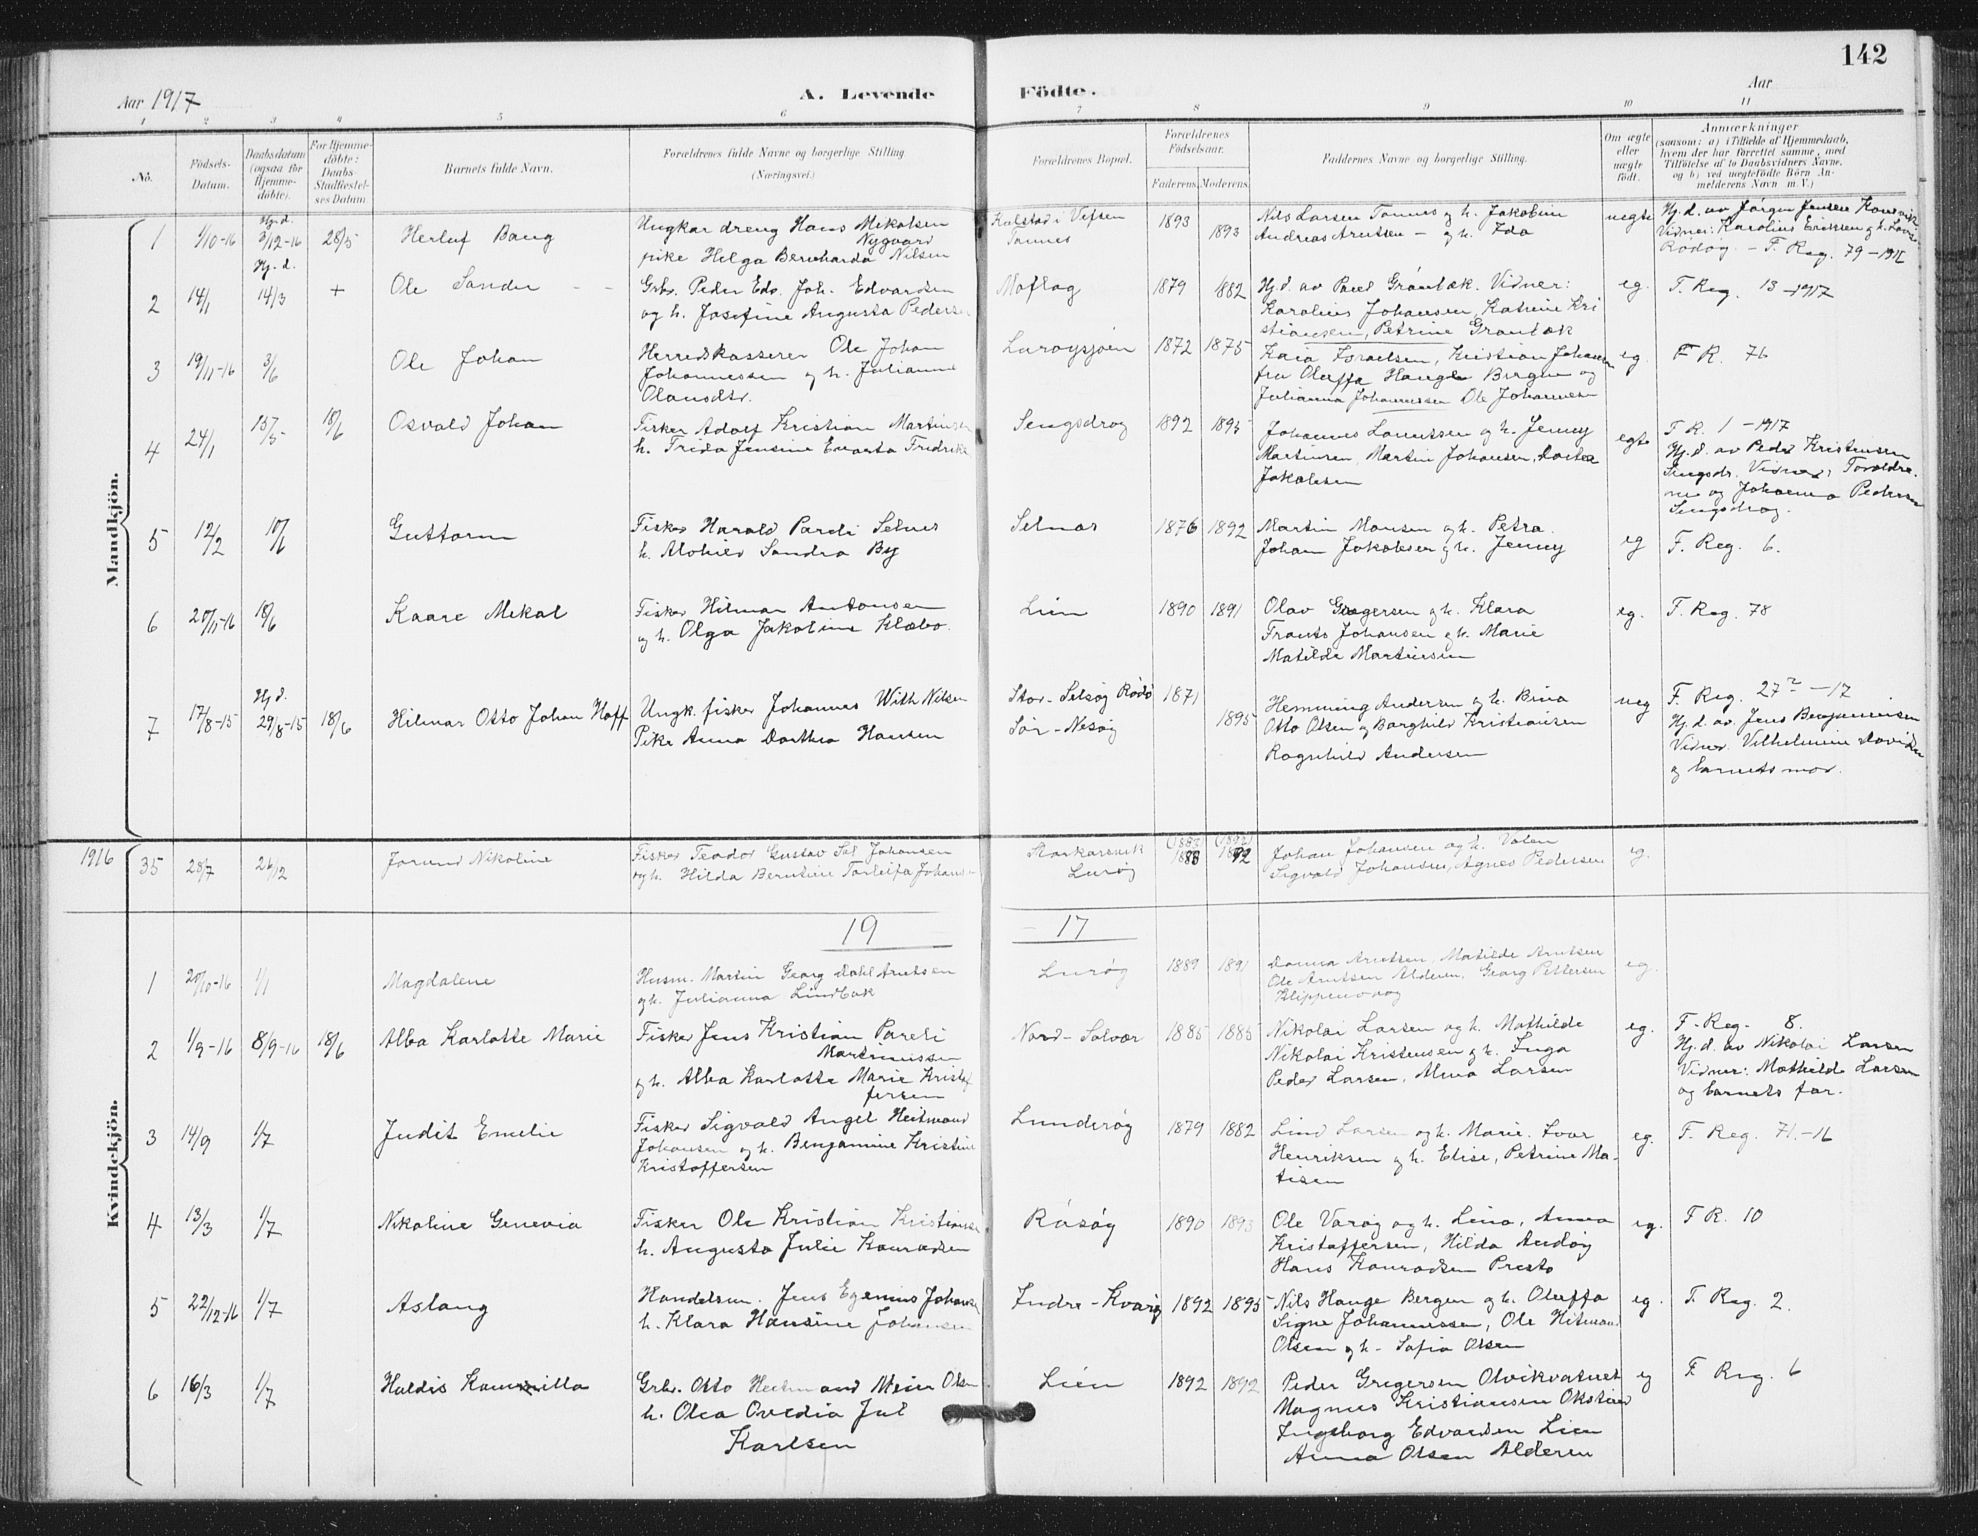 142
Aar 1917
A. Levende
Födte.
Aar
1 2 3 4 5 6 7 8 9 10 11
No.
Födsels-
Datum.
Daabsdatum
(ogsaa for
Hjemme-
döbte).
For Hjemme-
döbte:
Daabs
Stadfæstel-
ses Datum
Barnets fulde Navn.
Forældrenes fulde Navne og borgerlige Stilling
(Næringsvei.)
Forældrenes Bopæl.
Forældrenes
Födselsaar.
Faderens. Moderens.
Faddernes Navne og borgerlige Stilling.
Om ægte
eller
uægte
födt.
Anmærkninger
(saasom: a) i Tilfælde af Hjemmedaab,
hvem der har forrettet samme, med
Tilföielse af to Daabsvidners Navne,
og b) ved uægtefödte Börn An-
melderens Navn m. V.)
Mandkjön.
1 1/10-16 Hj.d. 3/12-16 28/5 Herluf Bang
Ungkar dreng Hans Mikalsen
Nygaard
pike Helga Bernharda Nilsen
Kulstad i Vefsen
Tonnes
1893 1893
Nils Larsen Tonnes og h. Jakobine
Andreas Arntsen – og h. Ida
uegte
Hj.d. av Jørgen Jensen
Vidner: Karolius Eriksen og h.
Rødøy – F. Reg. 79 – 1916
2 14/1 Hj.d. 14/3 + Ole Sander
Grbr. Peder Edv. Joh. Edvardsen
og h. Josefine Augusta Peders
Moflag
1879 1882
Hj.d. av Paul Grønbæk. Vidner:
Karolius Johansen, Katrine Kri
stiansen, Petrine Grønbæk
eg.
F. Reg. 13 – 1917
3 19/11-16 3/6 Ole Johan
Herredskasserer Ole Johan
Johannessen og h. Julianne
Olausdtr.
Lurøysjøen
1872 1875
Kaia Israelsen, Kristian Johansen
fru Oluffa Hauge Bergen og
Julianna Johannessen Ole Johannesen
eg.
F R. 76
4 24/1 13/5 18/6 Osvald Johan
Fisker Adolf Kristian Martinsen
h. Frida Jensine Evarta Fredrikke
Sengsdrog
1892 1895
Johannes Lorentsen og h. Jenny
Martinsen, Martin Johansen, Dortea
Jakobsen
egte
F R. 1 – 1917
Hj.d. av Peder Kristensen
Sengsdr. Vidner: Forældre
ne og Johanna Pedersen
Sengsdrog.
5 12/2 10/6 Guttorm
Fisker Harald Pareli Selnes
h. Alvhild Sandra By
Selnes
1876 1892
Martin Monsen og h. Petra.
Johan Jakobsen og h. Jenny
eg
F. Reg. 6.
6 20/11-16 18/6 Kaare Mekal
Fisker Hilmar Antonsen
og h. Olga Jakoline Klæbo.
Lien
1890 1891
Olav Gregersen og h. Klara
Frants Johansen og h. Marie
Matilde Martinsen
eg.
F. Reg. 78
7 17/8-15 Hj.d. 29/8-15 18/6 Hilmar Otto Johan Hoff
Ungk. fisker Johannes With Nilsen
Pike Anna Dorthea Hansen
Stor-Selsøy Rødø
Sør-Nesøy
1871 1895
Hemming Andersen og h. Bina
Otto Olsen og Borghild Kristiansen
Ragnhild Andersen
ueg
F. Reg. 27 – 17
Hj.d. av Jens Benjaminsen
Vidner. Vilhelmine Davidsen
og barnets mor.
1916 35 28/7 26/12 Jorund Nikoline
Fisker Teodor Gustav Sal Johansen
og h. Hilda Berntine Torleifa Johans
Lurøy
1883 1892
Johan Johansen og h. Valen
Sigvald Johansen, Agnes Pedersen
eg.
19 17
Kvindekjön.
1 20/10-16 1/1 Magdalene
Husm. Martin Georg Dahl Arntsen
og h. Julianna Lindbak
Lurøy
1889 1891
Donna Arntsen, Matilde Arntsen
Ole Arntsen Alderen, Georg Pettersen
eg.
2 1/9-16 8/9-16 18/6 Alba Karlotte Marie
Fisker Jens Kristian Pareli
Martinussen
og h. Alba Karlotte Marie Kristof
fersen
Nord-Solvær
1885 1885
Nikolai Larsen og h. Mathilde
Nikolai Kristensen og h. Inga
Peder Larsen, Alma Larsen
eg.
F. Reg. 8.
Hj.d. av Nikolai Larsen
Vidner: Mathilde Larsen
og barnets far.
3 14/9 1/7 Judit Emelie
Fisker Sigvald Angel Heitmand
Johansen og h. Benjamine Kristine
Kristoffersen
Lunderøy
1879 1882
Lind Larsen og h. Marie. Ivar
Henriksen og h. Elise, Petrine Ma-
tisen
eg.
F. Reg. 71.–16
4 13/3 1/7 Nikoline Genevia
Fisker Ole Kristian Kristiansen
h. Augusta Julie Konradsen
Råsøy
1890 1893
Ole Varøy og h. Lina, Anna
Kristoffersen, Hilda Andøy
Hans Konradsen Presto
eg.
F R. 10
5 22/12-16 1/7 Aslaug
Handelsm. Jens Egenius Johanse
h. Klara Hansine Johansen
Indre-Kvarøy
1892 1895
Nils Hauge Bergen og h. Oluffa
Signe Johannessen, Ole Hitman
Olsen og h. Sofia Olsen
eg.
F. Reg. 2.
6 16/3 1/7 Haldis Kamilla
Grbr. Otto Heitmand Meier Olsen
h. Olea Ovedia Jul
Karlsen
Lien
1892 1892
Peder Gregersen Olvikvatnet
Magnus Kristiansen
Ingeborg Edvardsen Lien
Anna Olsen Alderen
eg
F. Reg. 6